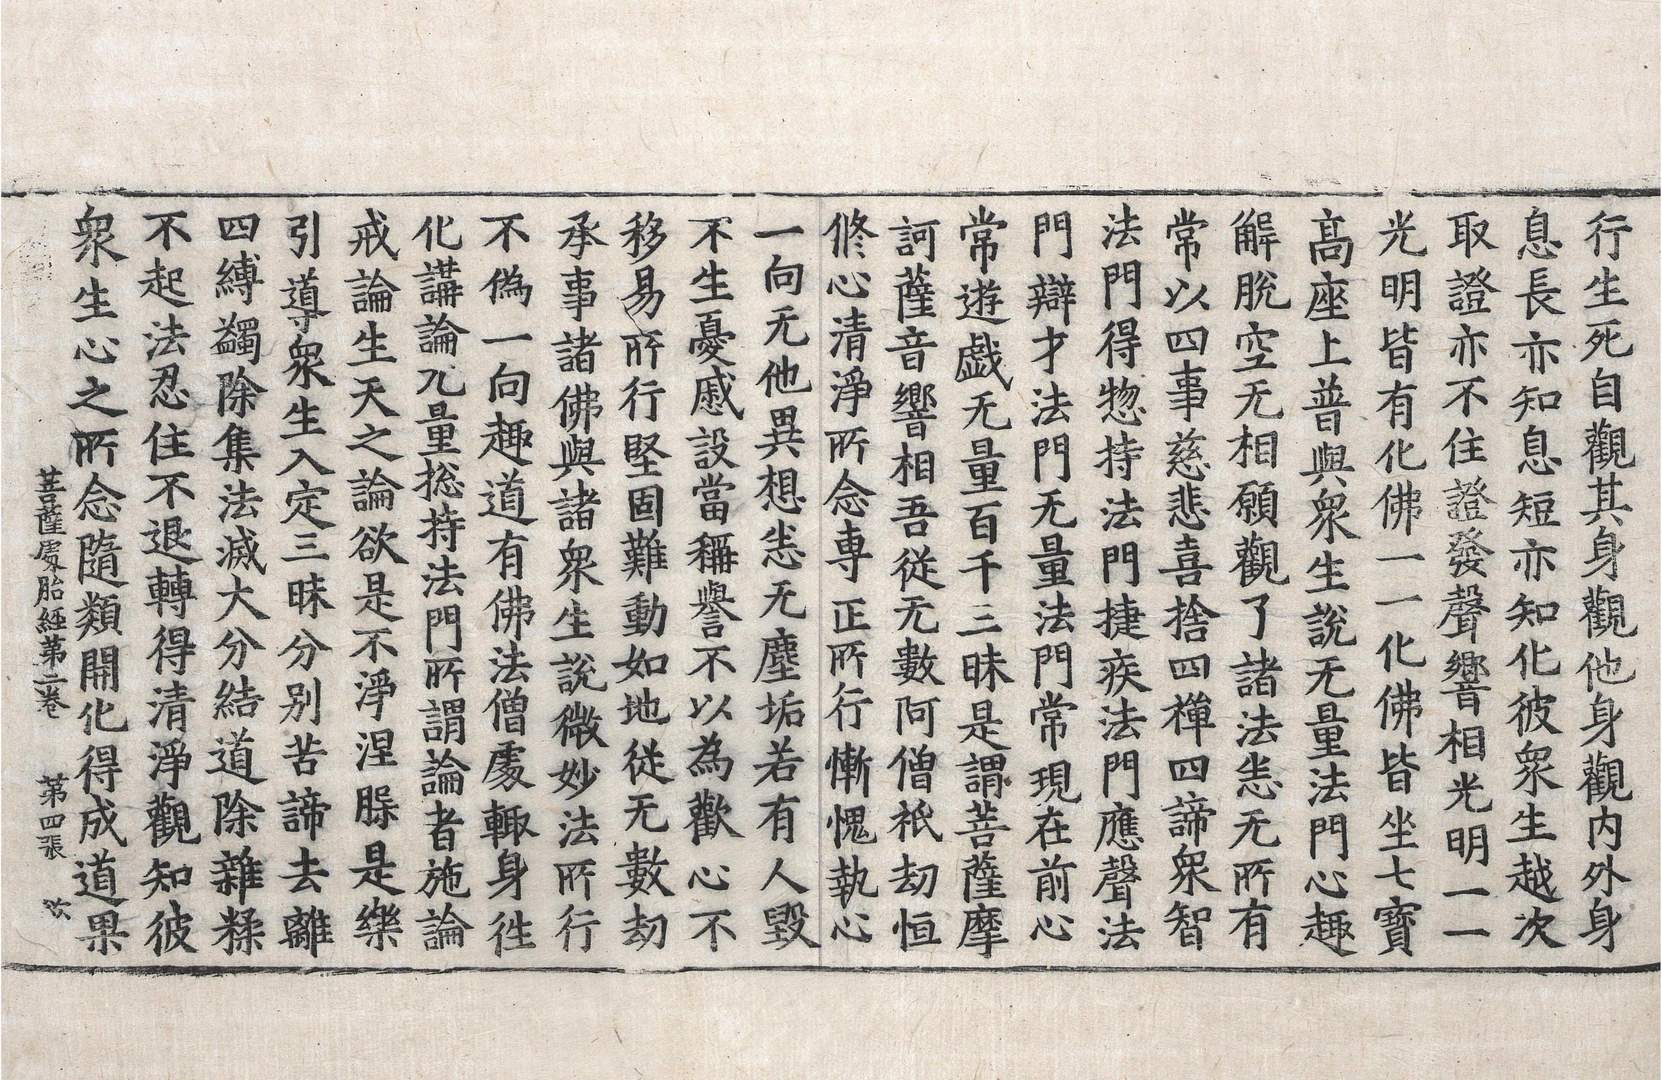 行生死自觀其身觀他身觀内外身
息長亦知息短亦知化彼衆生越次
取證亦不住證發聲響相光明一一
光明皆有化佛一一化佛皆坐七寶
髙座上普與衆生說无量法門心趣
解脫空无相願觀了諸法恙无所有
常以四事慈悲喜捨四禪四諦衆智
法門得惣持法門捷疾法門應聲法
門辯才法門无量法門常現在前心
常遊戲无量百千三昧是謂菩薩摩
訶薩音響相吾從无數阿僧祇劫恒
修心清淨所念専正所行慚愧執心
一向无他異想恙无塵垢若有人毀
不生憂慼設當稱譽不以為歡心不
移易所行堅固難動如地從无數劫
承事諸佛與諸衆生說微妙法所行
不偽一向趣道有佛法僧處輙身徃
化講論无量捴持法門所謂論者施論
戒論生天之論欲是不淨涅槃是樂
引導衆生入定三昧分别苦諦去離
四縛蠲除集法滅大分結道除雜糅
不起法忍住不退轉得清淨觀知彼
衆生心之所念隨類開化得成道果
菩薩處胎經第二卷 第四張